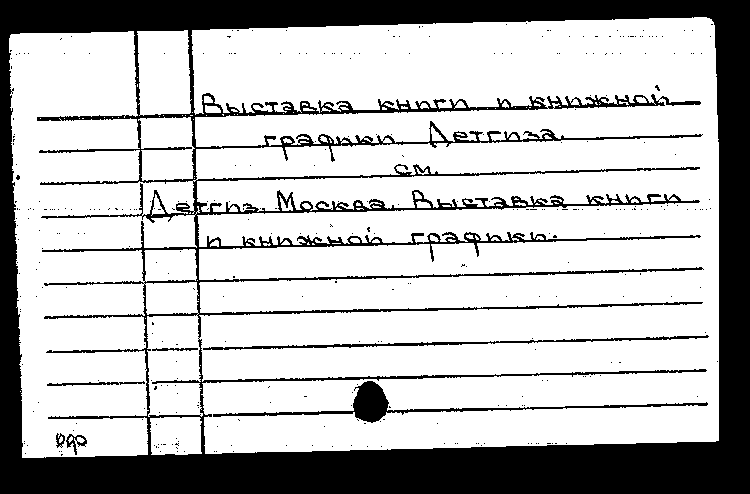 Выставка книги и книжной
графики Детгиза.
см.
Детгиз, Москва. Выставка книги
и книжной графики.